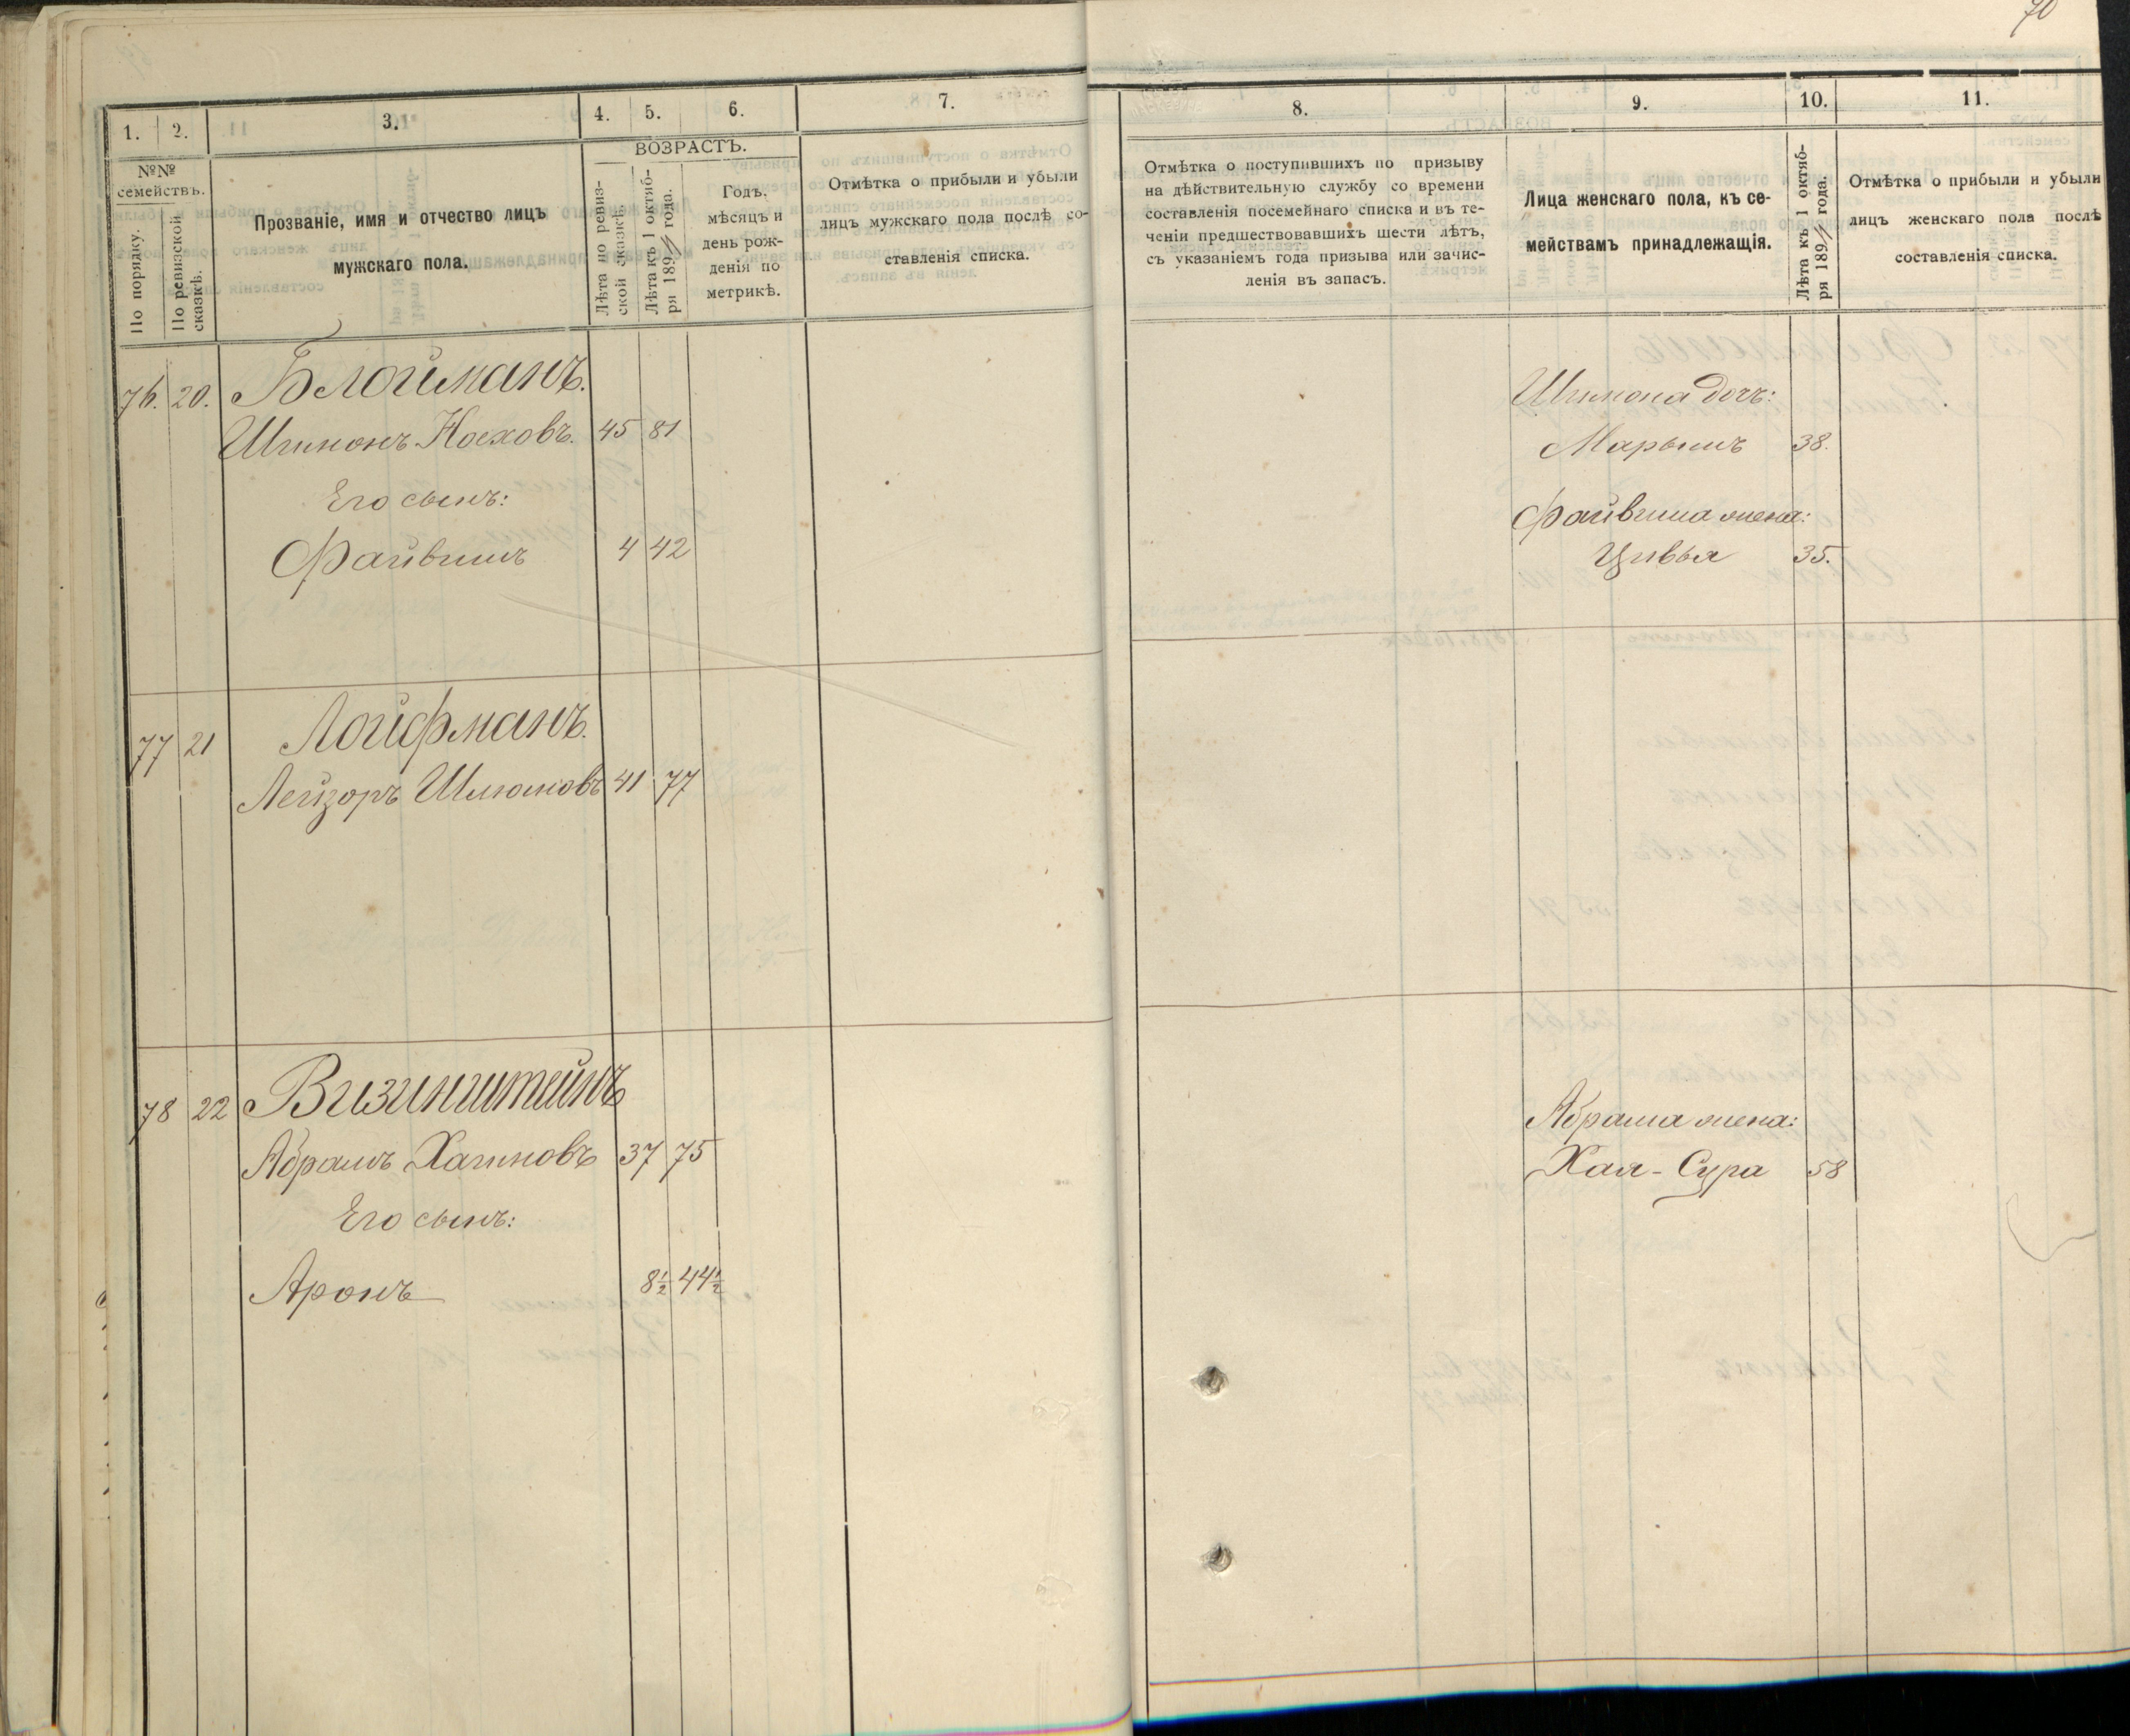 70
1. 2. 3. 4. 5. 6. 7.
№№ семействъ.
По порядку.
По ревизской сказкѣ.
Прозваніе, имя и отчество лицъ
мужскаго пола.
ВОЗРАСТЪ.
Лѣта по ревиз-
ской сказкѣ.
Лѣта къ 1 октяб-
ря 189 года.
Годъ,
мѣсяцъ и
день рож-
денія по
метрикѣ.
Отмѣтка о прибыли и убыли
лицъ мужскаго пола послѣ со-
ставленія списка.
76. 20. Блойманъ.
Шимонъ Носховъ. 45 81
Его сынъ:
Файвишъ 4 42
77 21 Лойфманъ.
Лейзоръ Шлюмовъ 41 77
78 22 Визинштейнъ
Абрамъ Хаимовъ 37 75
Его сынъ:
Аронъ 8½ 44½
8. 9. 10. 11.
Отмѣтка о поступившихъ по призыву
на дѣйствительную службу со времени
составленія посемейнаго списка и въ те-
ченіи предшествовавшихъ шести лѣтъ,
съ указаніемъ года призыва или зачис-
ленія въ запасъ.
Лица женскаго пола, къ се-
мействамъ принадлежащія.
Лѣта къ 1 октяб-
ря 189 года.
Отмѣтка о прибыли и убыли
лицъ женскаго пола послѣ
составленія списка.
Шимона дочь:
Марьимъ 38.
Файвиша жена:
Цивья 35.
Абрама жена:
Хая-Сура 58